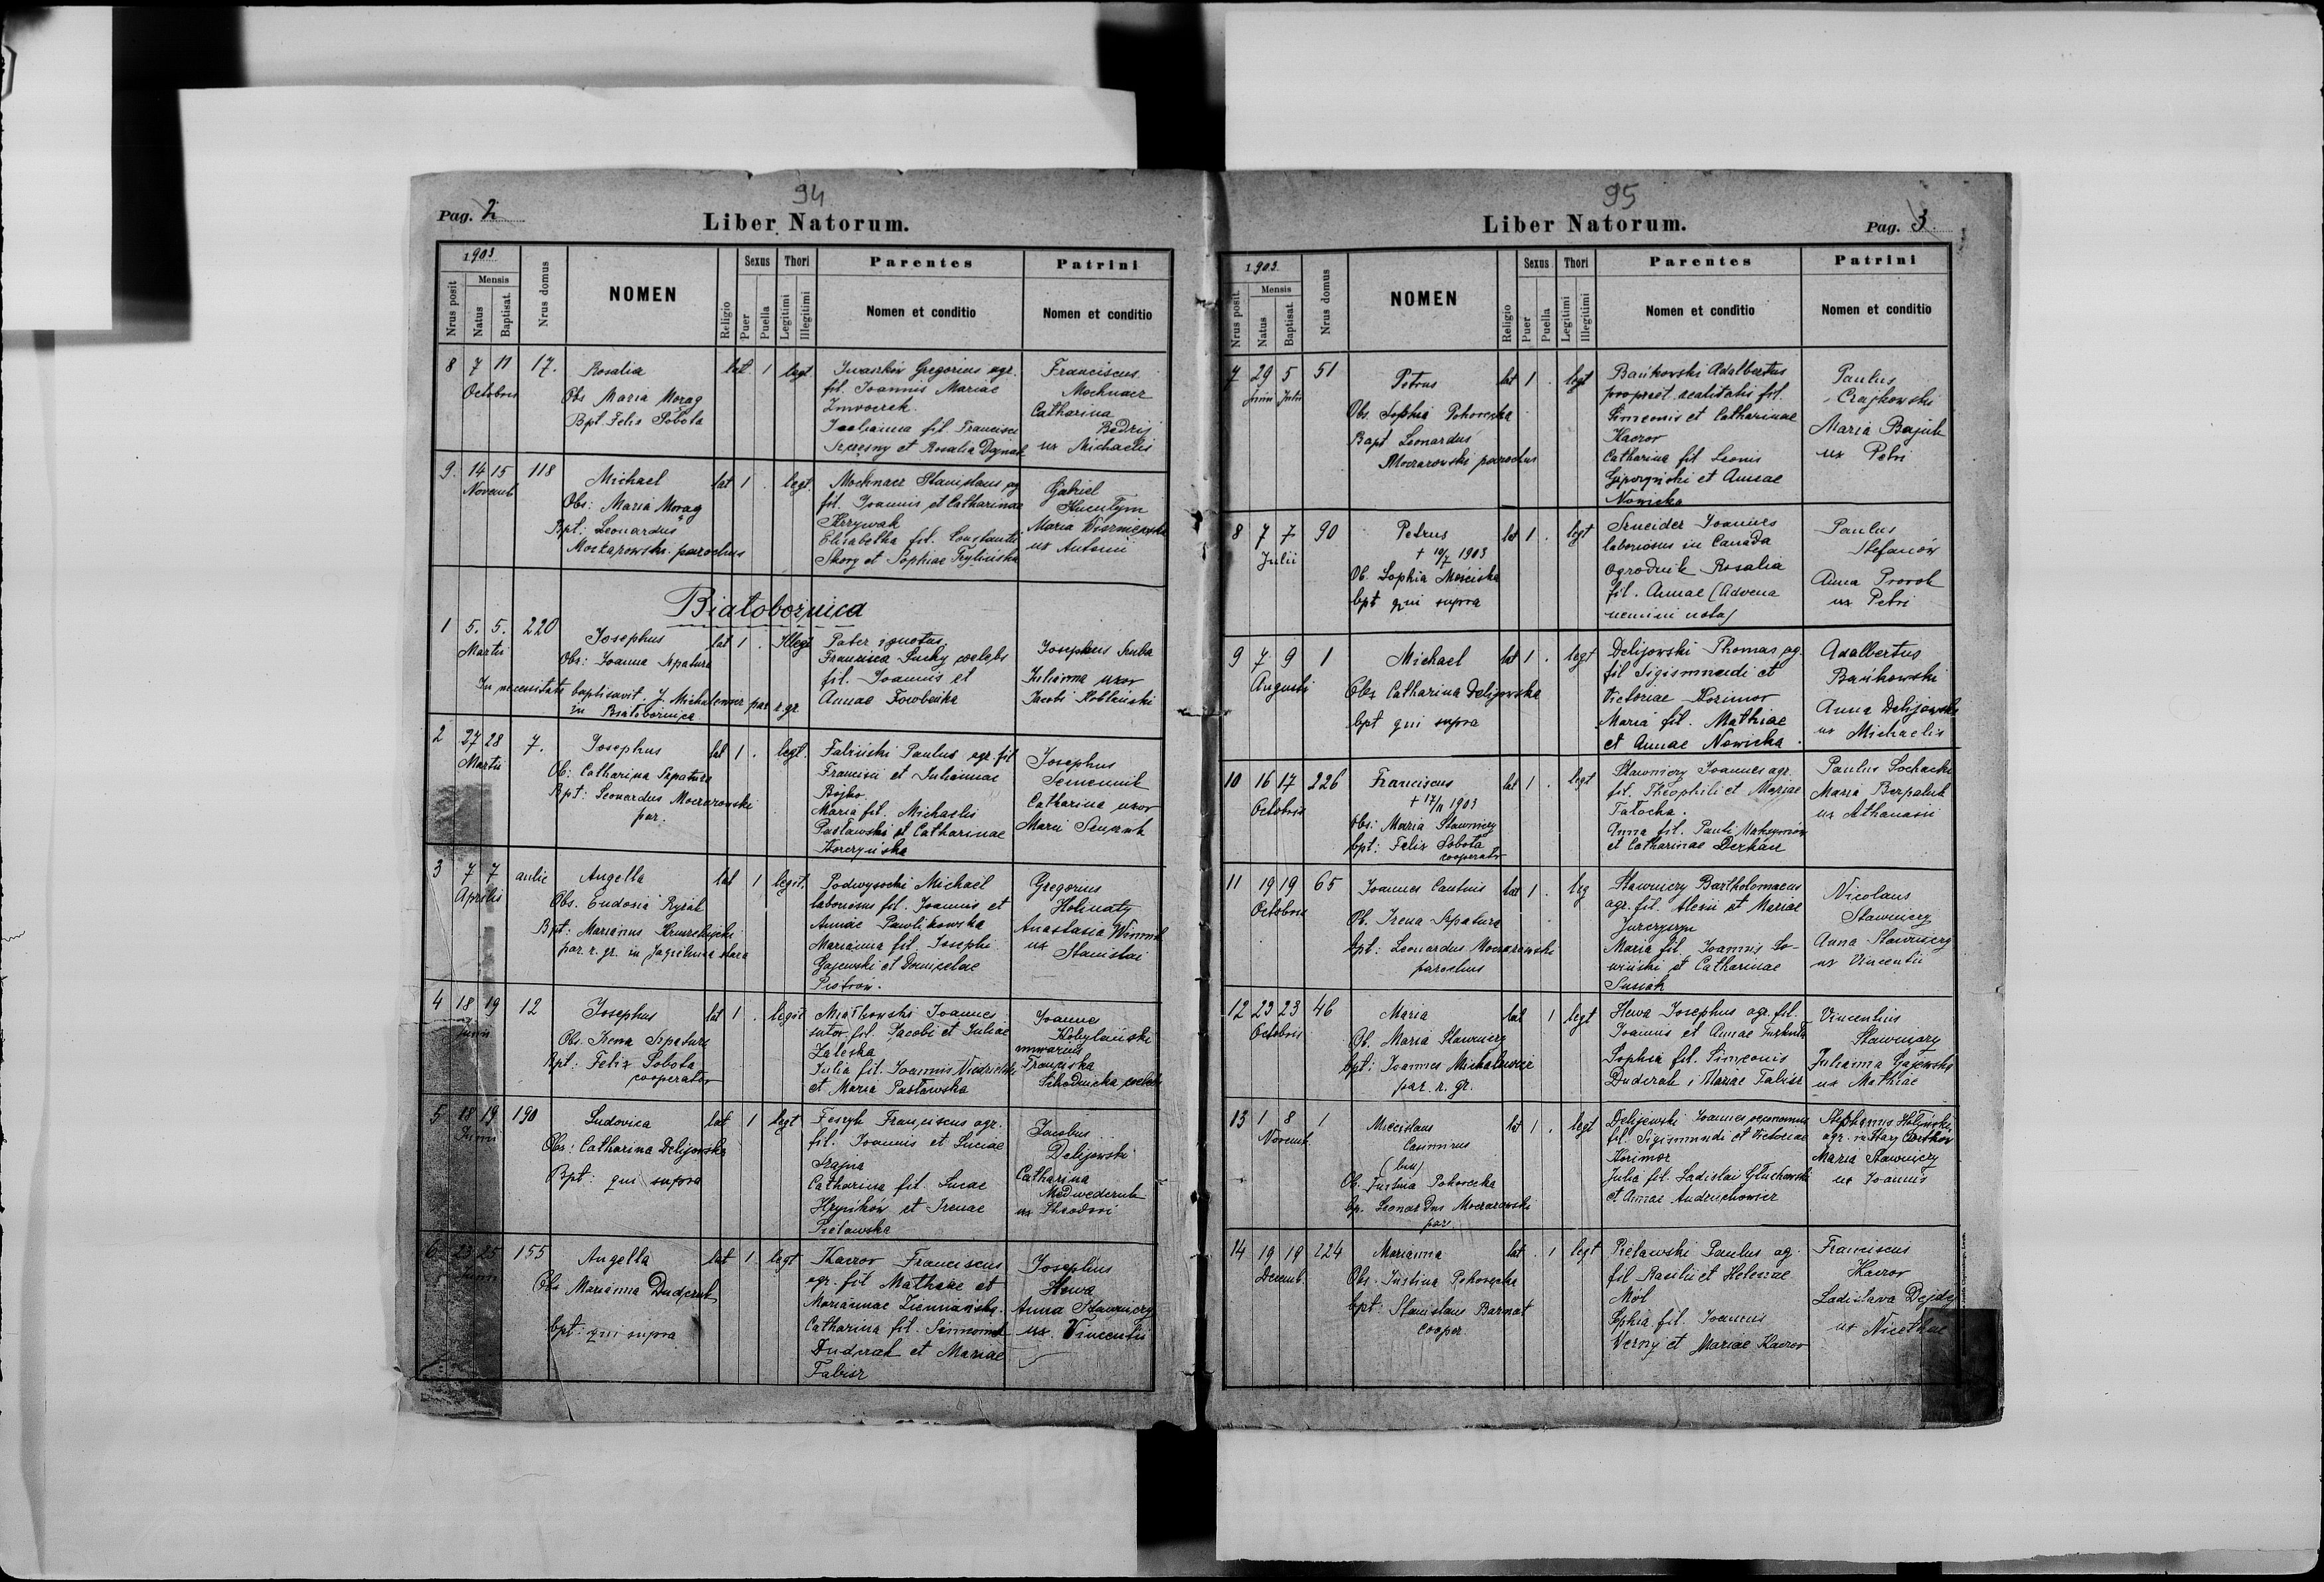 94
Pag. 2
Liber Natorum.
1903
Nrus posit
Mensis
Natus
Baptisat.
Nrus domus
NOMEN
Religio
Sexus
Puer
Puella
Thori
Legitimi
Illegitimi
Parentes
Nomen et conditio
Patrini
Nomen et conditio
8 7 11 17. Rosalia lat. 1 legt
Octobris
Obs Maria Morag
Bpt. Felix Sobota
Iwaszków Gregorius agr.
fil. Joannis Mariae
fil. Francisci
et Rosalia
Franciscus
Mochnacz
Catharina
Bedrij
ux Michaelis
9. 14 15 118 Michael lat 1 . legt.
Novemb
Obs: Maria Morag
Bpt: Leonardus
Moczarowski parochus
Mochnacz Stanislaus ag
fil. Joannis et Catharinae
Krzywak
Elisabetha fil. Constantii
Skory et Sophiae
Gabriel
Maria
ux Antonii
Białobożnica
1 5. 5. 220 Josephus lat 1 . Illegt
Martii
Obs: Joanna Szpatura
In necessitate baptisavit J. par r. gr.
in Białobożnica
Pater ignotus
Francisca Suchy coelebs
fil. Joannis et
Annae
Josephus
Julianna uxor
Jacobi
2 27 28 7. Josephus lat 1 . legt.
Martii
Ob: Catharina Szpatura
Bpt: Leonardus Moczarowski
par.
Paulus agr. fil
Francisci et Juliannae
Bojko
Maria fil. Michaelis
Pasławski et Catharinae
Josephus
Semeniuk
Catharina uxor
3 7 7 aulic Angella lat 1 legit.
Aprilis
Obs. Eudosia
Bpt: Marianus
par. r. gr. in Jagielnica stara
Podwysocki Michael
laboriosus fil. Joannis et
Annae Pawlikowska
Marianna fil. Josephi
Gajewski et
Piotrów.
Gregorius
Holinaty
Anastasia
ux
Stanislai
4 18 19 12 Josephus lat 1 . legit
Junii
Obs. Irena Szpatura
Bpt: Felix Sobota
cooperator
Joannes
sutor fil. Jacobi et Juliae
Zaleska
Julia fil. Joannis
et Maria Pasławska
Joannes
Kobylański
Francisca
5 18 19 190 Ludovica lat 1 legt
Junii
Obs: Catharina Delijowska
Bpt: qui supra
Franciscus agr.
fil. Joannis et Lucae
Catharina fil. Lucae
et Irenae
Pielawska
Jacobus
Delijowski
Catharina
Medwederuk
ux Theodori
6 23 25 155 Angella lat 1 . legt
Junii
Obs Marianna Duderak
bpt: qui supra
Kaczor Franciscus
agr. fil Mathiae et
Mariannae Ziemiańska.
Catharina fil. Simeonis
Duderak et Mariae
Fabisz
Josephus
Hewa
Anna Stawniczy
ux. Vincentii
95
Liber Natorum.
Pag. 3
1903.
Nrus posit.
Mensis
Natus
Baptisat.
Nrus domus
NOMEN
Religio
Sexus
Puer
Puella
Thori
Legitimi
Illegitimi
Parentes
Nomen et conditio
Patrini
Nomen et conditio
7 29 5 51 Petrus lat 1 . legt
Junii Julii
Obs. Sophia Pohorecka
Bapt Leonardus
Moczarowski parochus
Bańkowski Adalbertus
propriet. realitatis fil.
Simeonis et Catharinae
Kaczor
Catharina fil Leonis
et Annae
Nowicka
Paulus
Czajkowski
Maria
ux Petri
8 7 7 90 Petrus lat 1 . legt
Julii
+ 10/7 1903
Ob. Sophia Mościska
bpt qui supra
Sneider Joannes
laboriosus in Canada
Ogrodnik Rosalia
fil. Annae (Advena
nemini nota)
Paulus
Stefanów
Anna
ux Petri
9 7 9 1 Michael lat 1 . legt
Augusti
Obs Catharina Delijowska
bpt qui supra
Delijowski Thomas ag.
fil Sigismundi et
Victoriae Korimor
Maria fil. Mathiae
et Annae Nowicka
Adalbertus
Bańkowski
Anna Delijowska
ux Michaelis
10 16 17 226 Franciscus lat 1 . legt
Octobris
+ 17/11 1903
Obs: Maria Stawniczy
bpt: Felix Sobota
cooperator
Stawniczy Joannes agr.
fil. Theophili et Mariae
Tatocha.
Anna fil. Pauli Maksymów
et Catharinae Derkacz
Paulus Sochacki
Maria
ux Athanasii
11 19 19 65 Joannes Cantius lat 1 . leg
Octobris
Ob. Irena Szpatura
bpt: Leonardus Moczarowski
parochus
Stawniczy Bartholomaeus
agr. fil. Alexii et Mariae
Jurczyszyn
Maria fil. Joannis
et Catharinae
Nicolaus
Stawniczy
Anna Stawniczy
ux Vincentii
12 23 23 46 Maria lat 1 legt
Octobris
Ob. Maria Stawniczy
bpt: Joannes
par. r. gr.
Hewa Josephus agr. fil.
Joannis et Annae
Sophia fil. Simeonis
Duderak i Mariae Fabisz
Vincentius
Stawniczy
Julianna Gajewska
ux Mathiae
13 1 8 1 Miecislaus lat 1 . legt
Novemb.
Casimirus
(bin)
Ob. Justina Pohorecka
bp. Leonardus Moczarowski
par
Delijowski Joannes oeconomus
fil. Sigismundi et Victoriae
Korimor
Julia fil. Ladislai Głuchowski
et Annae Andruchowicz
Stephanus
agr. in Stary Czortków
Maria Stawniczy
ux Joannis
14 19 19 224 Marianna lat . 1 legt
Decemb.
Obs. Justina Pohorecka
bpt: Stanislaus Barnat
cooper.
Pielawski Paulus ag.
fil Basilii et Helenae
Mól
Sophia fil. Joannis
Verny et Mariae Kaczor
Franciscus
Kaczor
Ladislava
ux Nicetae